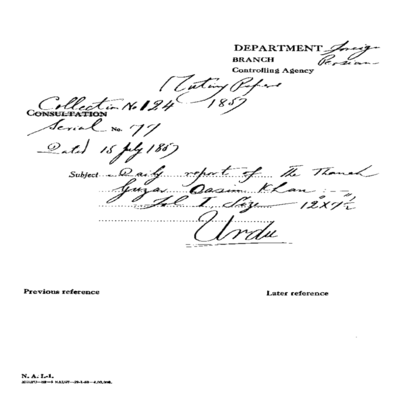 DEPARTMENT Foreign
BRANCH Persian
Controlling Agency
Mutiny Papers
Collection No 124 1857
CONSULTATION
Serial No. 77
Dated 15 July 1857
Subject Daily report of The Thanah
Guzar Qasim Khan :—
Fol I, Size 12"x7½
Urdu
Previous reference
Later reference
N. A. I.-1.